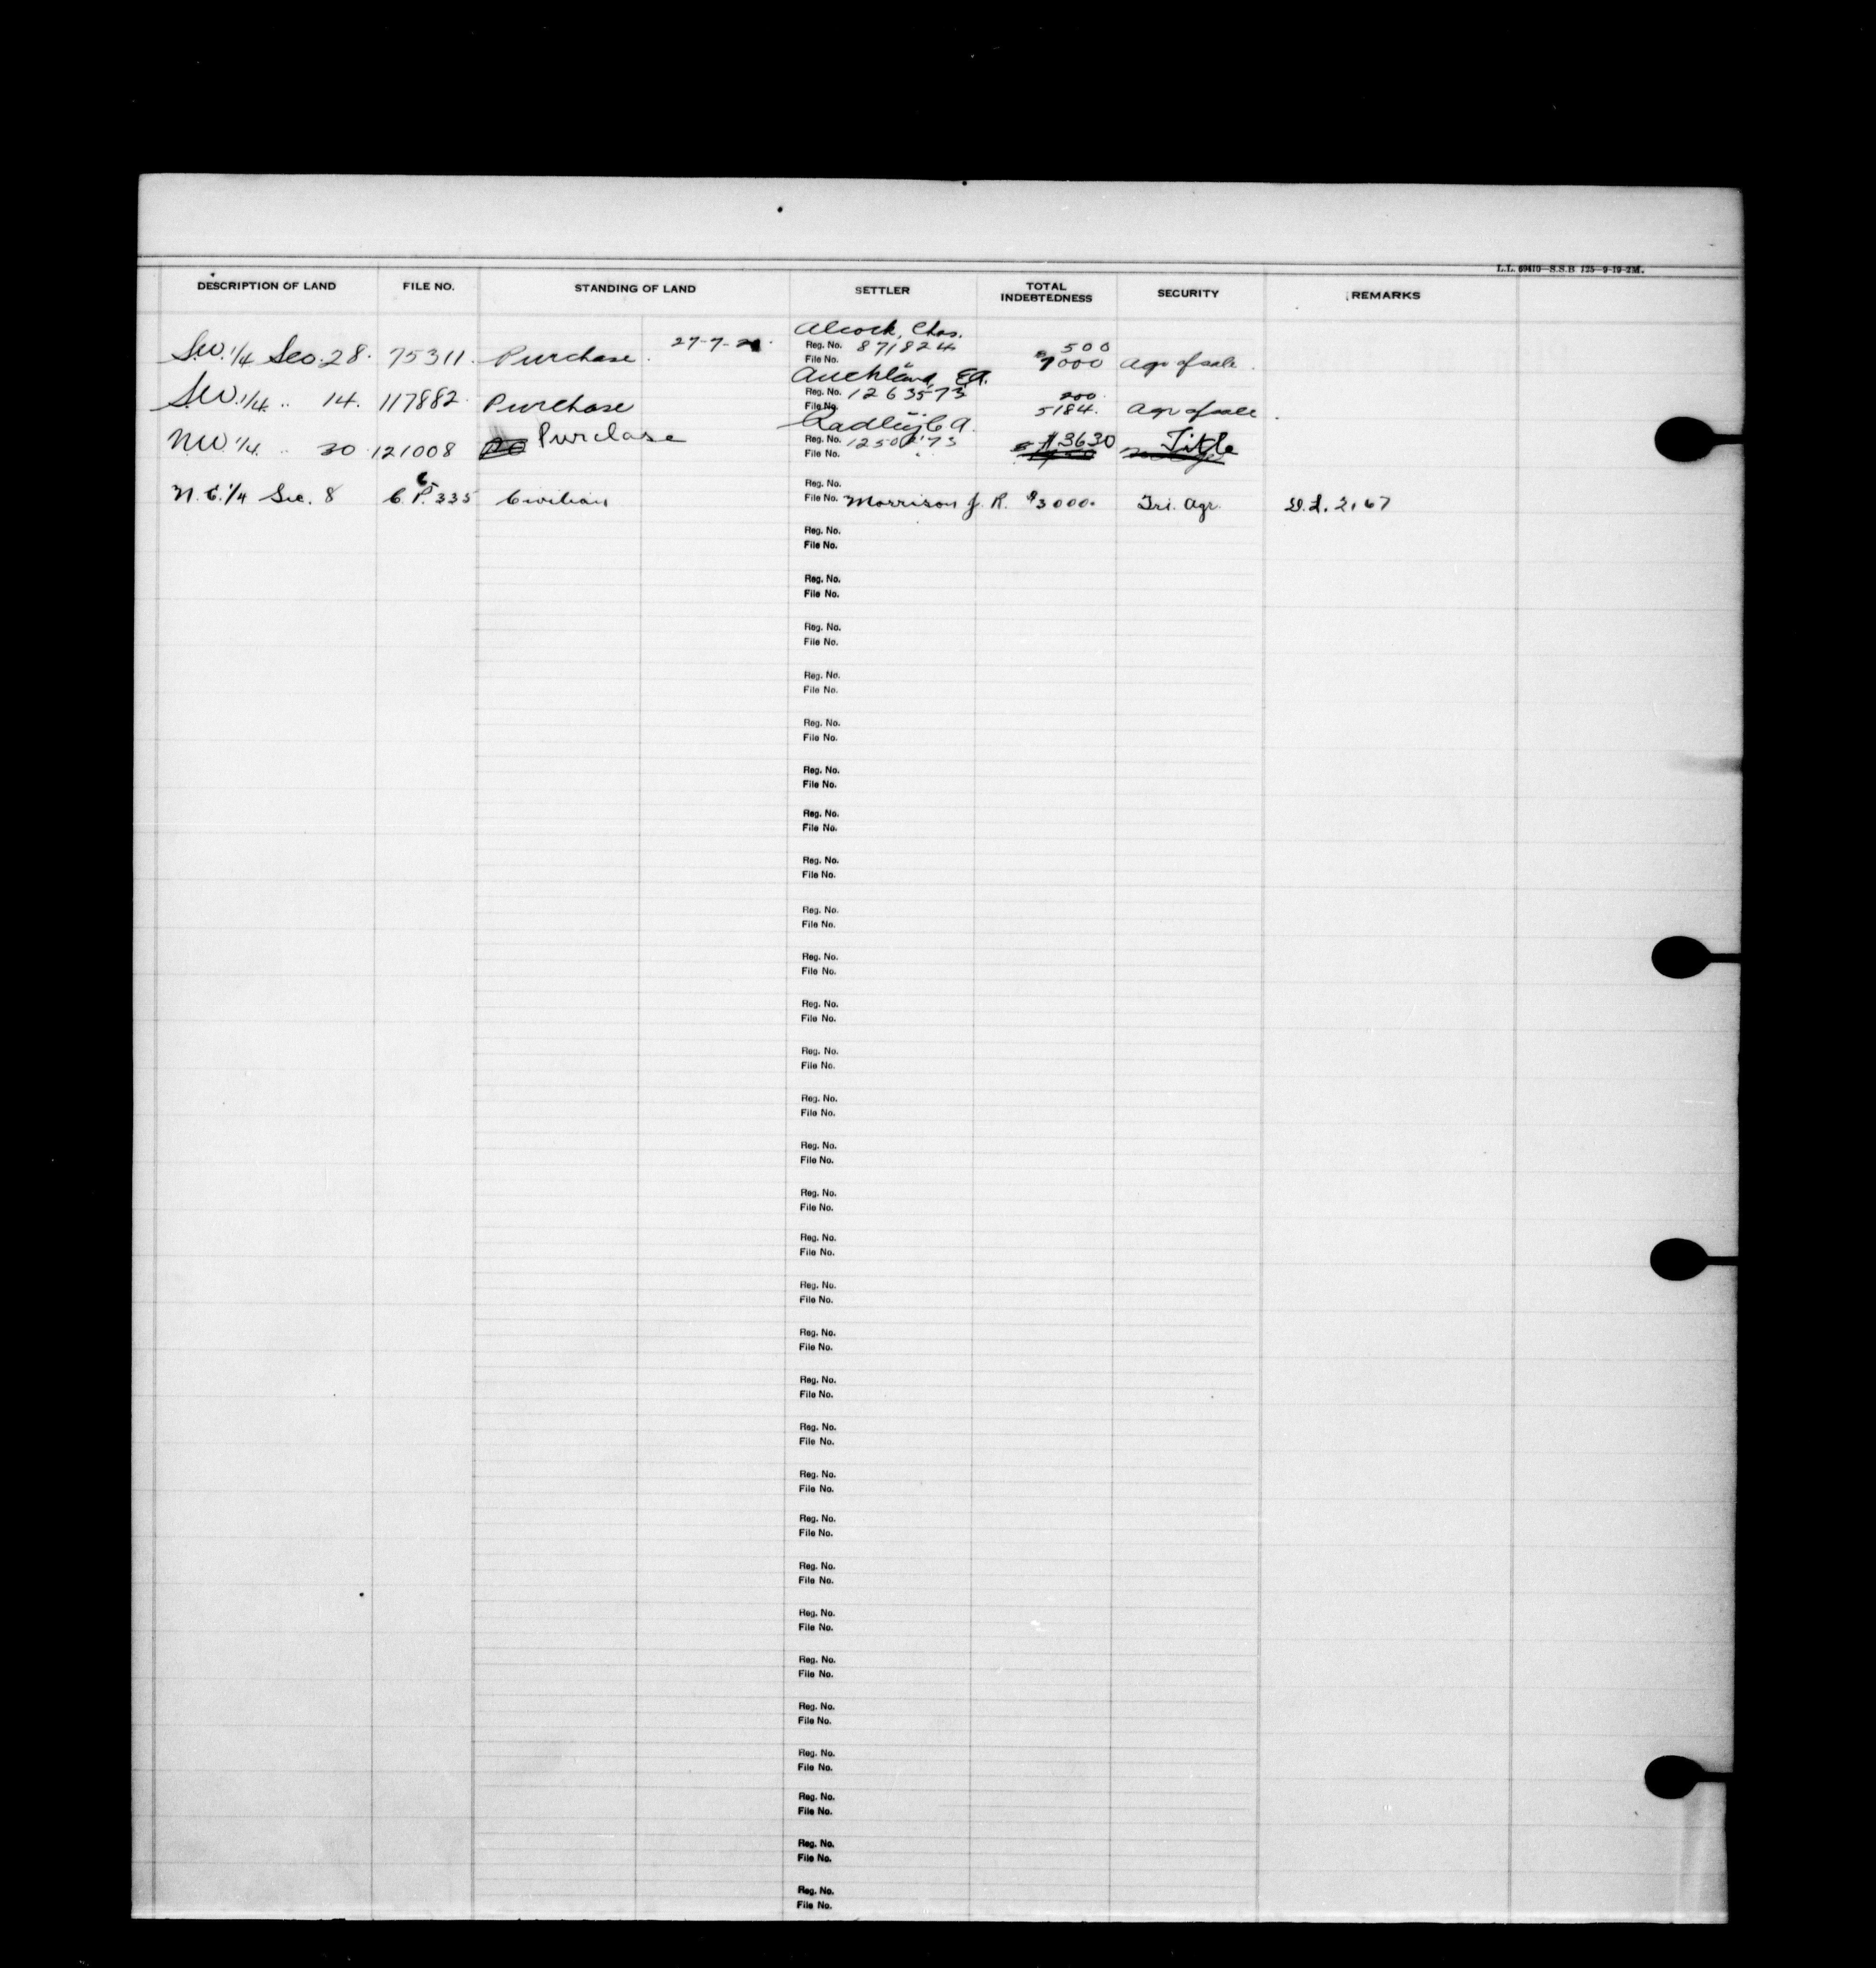 L.L. 69410—S.S.B. 125—9-19-2M.
DESCRIPTION OF LAND FILE NO. STANDING OF LAND SETTLER TOTAL INDEBTEDNESS SECURITY REMARKS
Alcock, Chas.
27-7- Reg. No. 871824 500
SW. 1/4 Sec. 28. 75311. Purchase. File No. 7000 Agr of sale.
Auchland, E.A.
Reg. No. 1263573 200
SW. 1/4 " 14. 117882. Purchase File No. 5184. Agr of sale.
Radley C A.
NW 1/4 " 30 121008 Purchase Reg. No. $3630 Title
File No.
Reg. No.
N.E. 1/4 Sec. 8 C.P. 335 Civilian File No. Morrison J. R. $3000. Tri. Agr. D.L. 2167
Reg. No.
File No.
Reg. No.
File No.
Reg. No.
File No.
Reg. No.
File No.
Reg. No.
File No.
Reg. No.
File No.
Reg. No.
File No.
Reg. No.
File No.
Reg. No.
File No.
Reg. No.
File No.
Reg. No.
File No.
Reg. No.
File No.
Reg. No.
File No.
Reg. No.
File No.
Reg. No.
File No.
Reg. No.
File No.
Reg. No.
File No.
Reg. No.
File No.
Reg. No.
File No.
Reg. No.
File No.
Reg. No.
File No.
Reg. No.
File No.
Reg. No.
File No.
Reg. No.
File No.
Reg. No.
File No.
Reg. No.
File No.
Reg. No.
File No.
Reg. No.
File No.
Reg. No.
File No.
Reg. No.
File No.